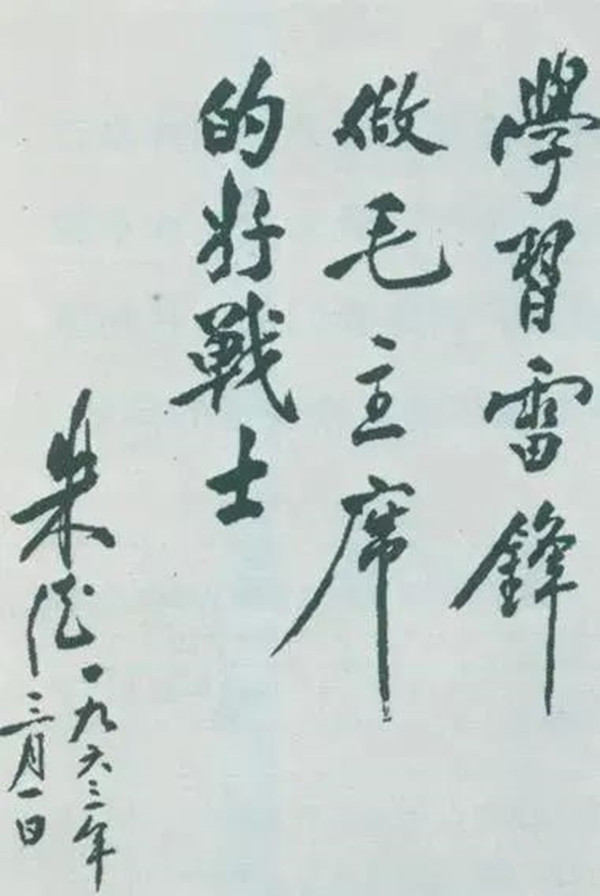 學習雷鋒
做毛主席
的好戰士
朱德一九六三年
三月一日